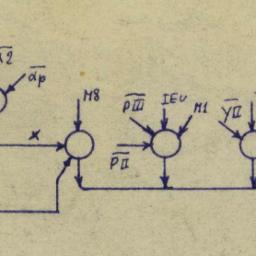 α2
αp
M8
x
pIII
IEU
M1
pII
yII